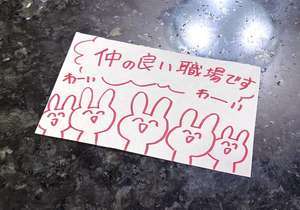 仲の良い職場です
わーい
わーい